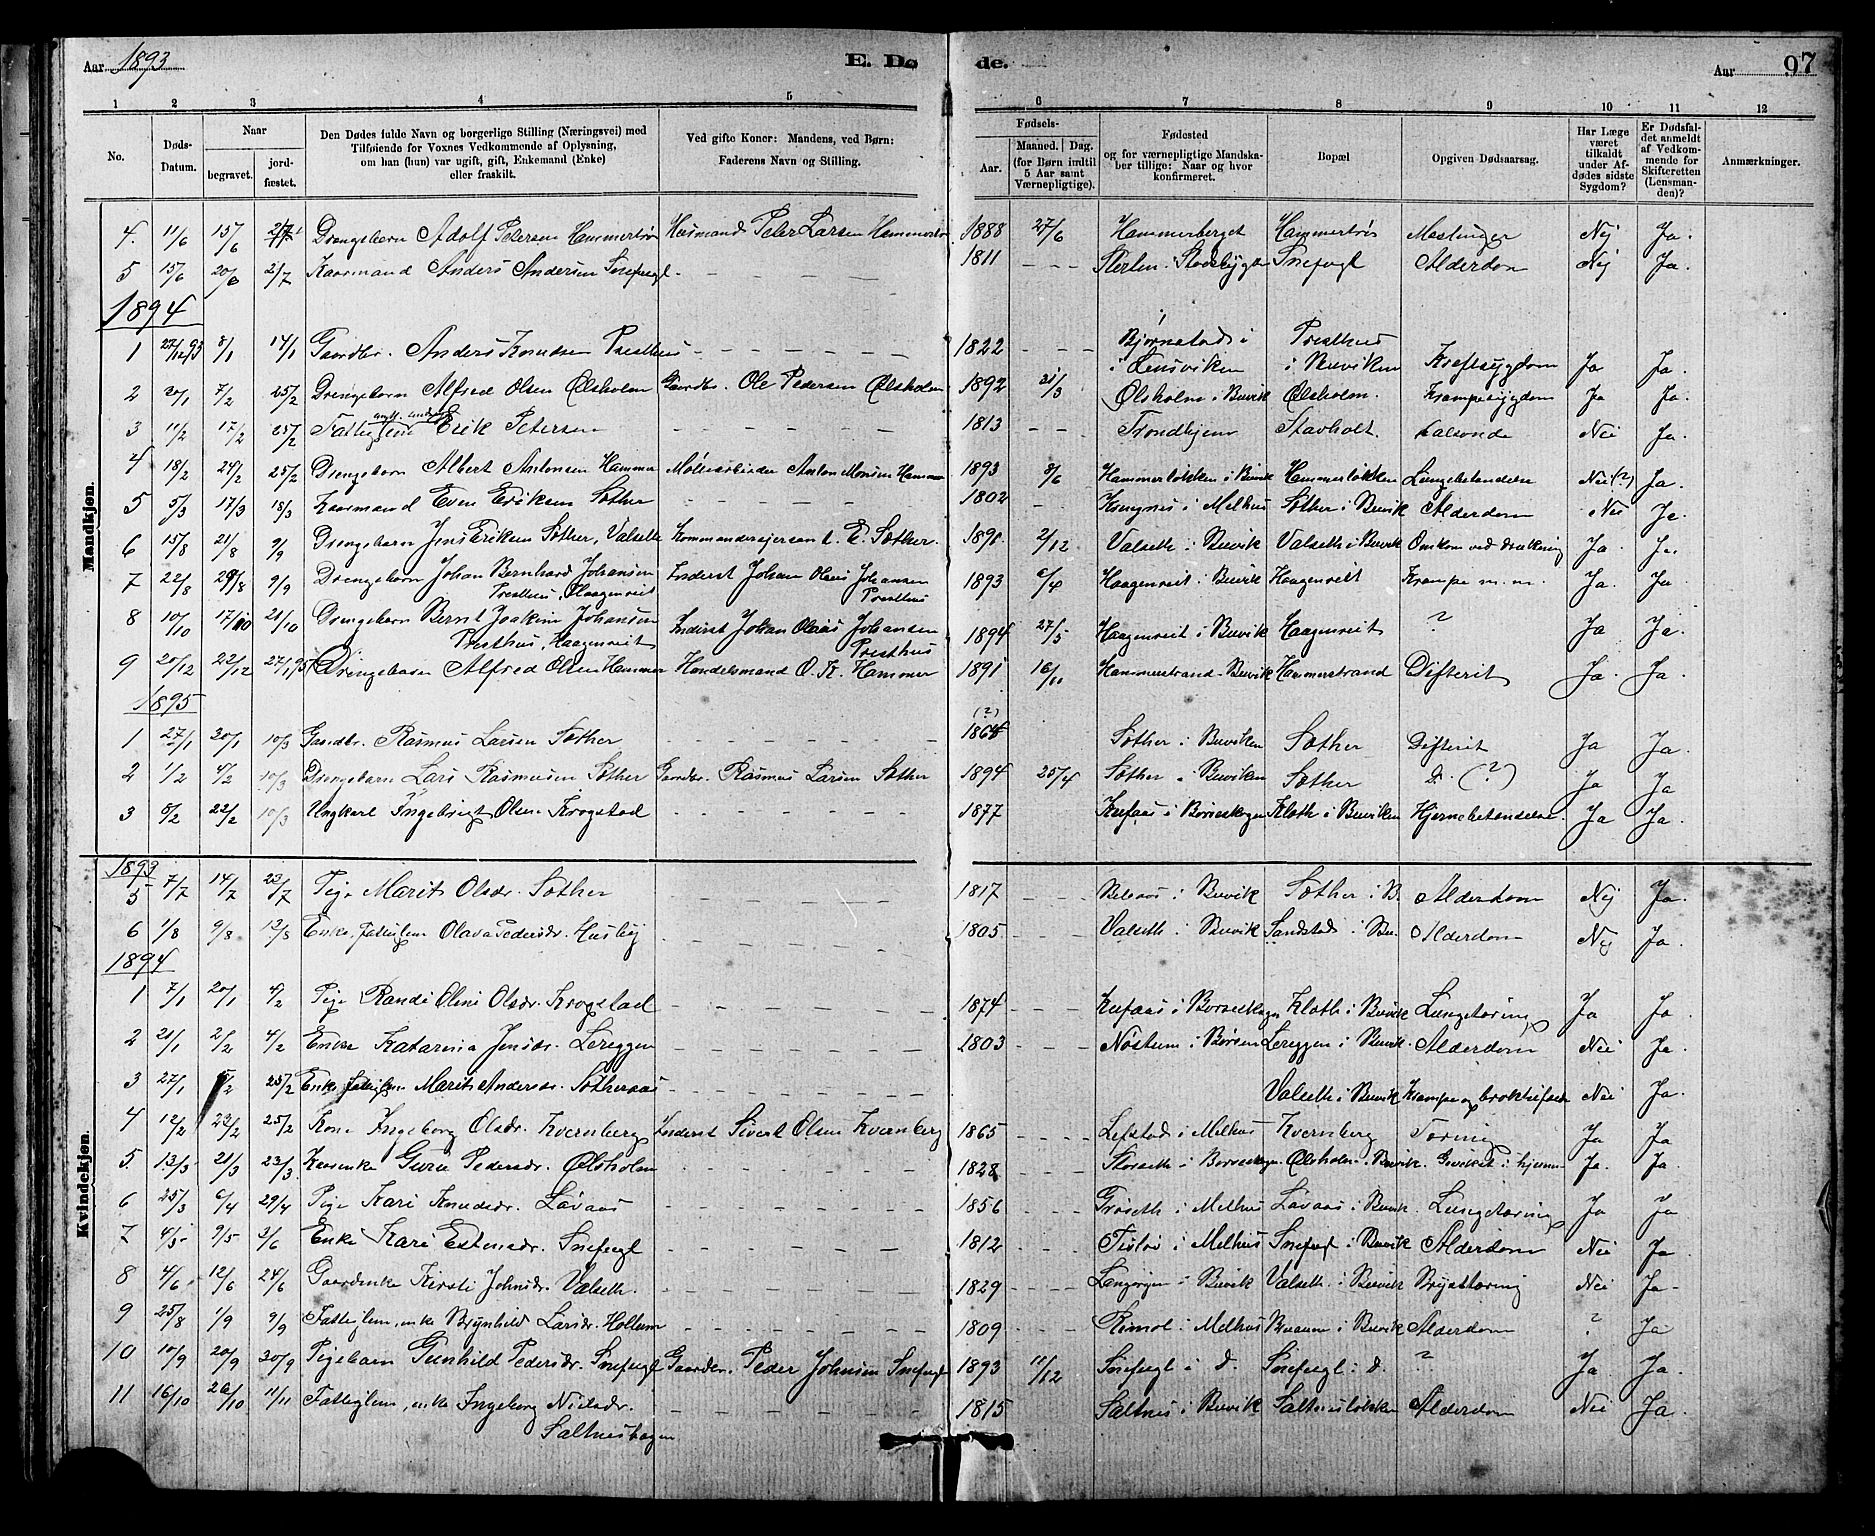 Aar 1893 E. Dø de. Aar 97
1 2 3 4 5 6 7 8 9 10 11 12
No. Døds-Datum. Naar begravet. jordfæstet. Den Dødes fulde Navn og borgerlige Stilling (Næringsvei) med Tilføiende for Voxnes Vedkommende af Oplysning, om han (hun) var ugift, gift, Enkemand (Enke) eller fraskilt. Ved gifte Koner: Mandens, ved Børn: Faderens Navn og Stilling. Fødsels- Aar. Maaned. Dag. (for Børn indtil 5 Aar samt Værnepligtige). Fødested og for værnepligtige Mandskaber tillige: Naar og hvor konfirmeret. Bopæl. Opgiven Dødsaarsag. Har Læge været tilkaldt under Afdødes sidste Sygdom? Er Dødsfaldet anmeldt af Vedkommende for Skifteretten (Lensmanden)? Anmærkninger.
Mandkjøn.
4. 11/6 15/6 Drengebarn Adolf Petersen Hammertrø Husmand Peter Larsen Hammertrø 1888 27/6 Hammerberget Hammertrøs Mæslinger Nej Ja.
5 15/6 20/6 2/7 Kaarmand Anders Andersen Snefugl - - - 1811 - - - Sterten i Stadsbygden Snefugl Alderdom Nej Ja.
1894
1 27/12 93 8/1 14/1 Gaardbr. Anders Knudsen Presthus - - - 1822 Bjørnstad i Lensviken Presthus i Buviken Kræftsygdom Ja Ja.
2 20/1 7/2 25/2 Drengebarn Alfred Olsen Ølsholm Gaardbr. Ole Pedersen Ølsholm 1892 21/3 Ølsholm i Buvik Ølsholm. Krampesygdom Ja Ja.
3 11/2 17/2 25/2 Fattiglem Erik Petersen - - - 1813 Trondhjem Stavholt. Halsonde Nei Ja.
4 18/2 24/2 25/2 Drengebarn Albert Antonsen Hammer Møllearbeider Anton Monsen Hammer 1893 8/6 Hammerløkken i Buvik Hammerløkken Lungebetændelse Nei (?) Ja.
5 5/3 17/3 18/3 Kaarmand Even Eriksen Sæther - - - 1802 - Krengnes i Melhus Sæther i Buvik Alderdom Nei Ja.
6 15/8 21/8 9/9 Drengebarn Jens Eriksen Sæther, Valseth Kommandersersjant E. Sæther. 2/12 Valseth i Buvik Valseth i Buvik Omkom ved drukning Ja. Ja.
7 22/8 29/8 9/9 Drengebarn Johan Bernhard Johansen Presthus, Haagenreit Inderst Johan Olaus Johansen Presthus 1893 6/4 Haagenreit i Buvik Haagenreit Krampe m.m. Ja. Ja
8 10/10 17/10 21/10 Drengebarn Bernt Joakim Johansen Presthus, Haagenreit Inderst Johan Olaus Johansen Presthus 1894 27/5 Haagenreit i Buvik Haagenreit ? Ja Ja.
9 20/12 22/12 27/1 95 Drengebarn Alfred Olsen Hammer Handelsmand O. K. Hammer 1891 16/11 Hammerstrand Buvik Hammerstrand Difterit Ja. Ja.
1895
1 27/1 20/1 10/3 Gaardbr. Rasmus Larsen Sæther - - - (?) 1864 Sæther i Buviken Sæther Difterit Ja Ja.
2 1/2 4/2 10/3 Drengebarn Lars Rasmusen Sæther Gaardbr. Rasmus Larsen Sæther 1894 25/4 Sæther i Buviken Sæther D. (?) Ja Ja
3 5/2 22/2 10/3 Ungkarl Ingebrigt Olsen Krogstad - - - 1877 Kufaas i Børseskogn Kloth i Buviken Hjernebetændelse Ja Ja.
Kvindekjøn.
1893
5 7/7 14/7 23/7 Pige Marit Olsdr. Sæther - - - 1817 - - - i Buvik Sæther i B. Alderdom Nej Ja.
6 1/8 9/8 13/8 Enke, Fattiglem Olava Pedersdr. Husby - - - 1805 - - - Valseth i Buvik Sandstad i Bu. Alderdom Nej Ja.
1894
1 7/1 20/1 4/2 Pige Randi Oline Olsdr. Krogstad - - - 1874 - - - Kufaas i Børseskogn Kloth i Buvik Lungetæring Ja Ja.
2 21/1 2/2 4/2 Enke Katarina Jensdr. Lereggen - - - 1803 - - - Nøstum i Børsen Lereggen i Buvik. Alderdom Nei Ja.
3 27/1 5/2 25/2 Enke Fattiglem Marit Andersdr. Sætheraas - - - Valseth i Buvik Krampe og Nei Ja.
4 12/2 23/2 25/2 Kone Ingeborg Olsdr. Kvernberg Inderst Sivert Olsen Kvernberg 1865 - - - Lefstad i Melhus Kvernberg Tæring Ja Ja
5. 13/3 21/3 23/3 Kaarenke Guru Pedersdr. Ølsholm - - - 1828 - - - Storseth i Børseskogn. Ølsholm i Buvik. i hjernen Ja. Ja.
6 25/3 6/4 29/4 Pige Kari Knudsdr. Løvaas - - - 1856 - - - Grøseth i Melhus Løvaas i Buvik. Lungetæring Ja Ja
7 4/5 9/5 2/6 Enke Kari Estensdr. Snefugl - - - 1812 - - - i Melhus Snefugl i Buvik Alderdom Nei Ja.
8 4/6 12/6 24/6 Gaardenke Kirsti Johnsdr. Valseth. - - - 1829 - - - Langørgen i Buvik Valseth i Buvik Brysttæring Nei Ja.
9 25/8 1/9 9/9 Fattiglem, enke Brynhild Larsdr. Hollum - - - 1809 - - - Rimol i Melhus Buaum i Buvik Alderdom ? Ja
10 10/9 20/9 30/9 Pigebarn Gunhild Pedersdr. Snefugl Gaardbr. Peder Johnsen Snefugl 1893 11/12 Snefugl i d. Snefugl i d. ? Ja Ja.
11 16/10 26/10 11/11 Fattiglem, enke Ingeborg Nielsdr. Saltneshagen - - - 1815 - - - Saltnes i Buvik Saltnesløkken Alderdom Nei Ja.